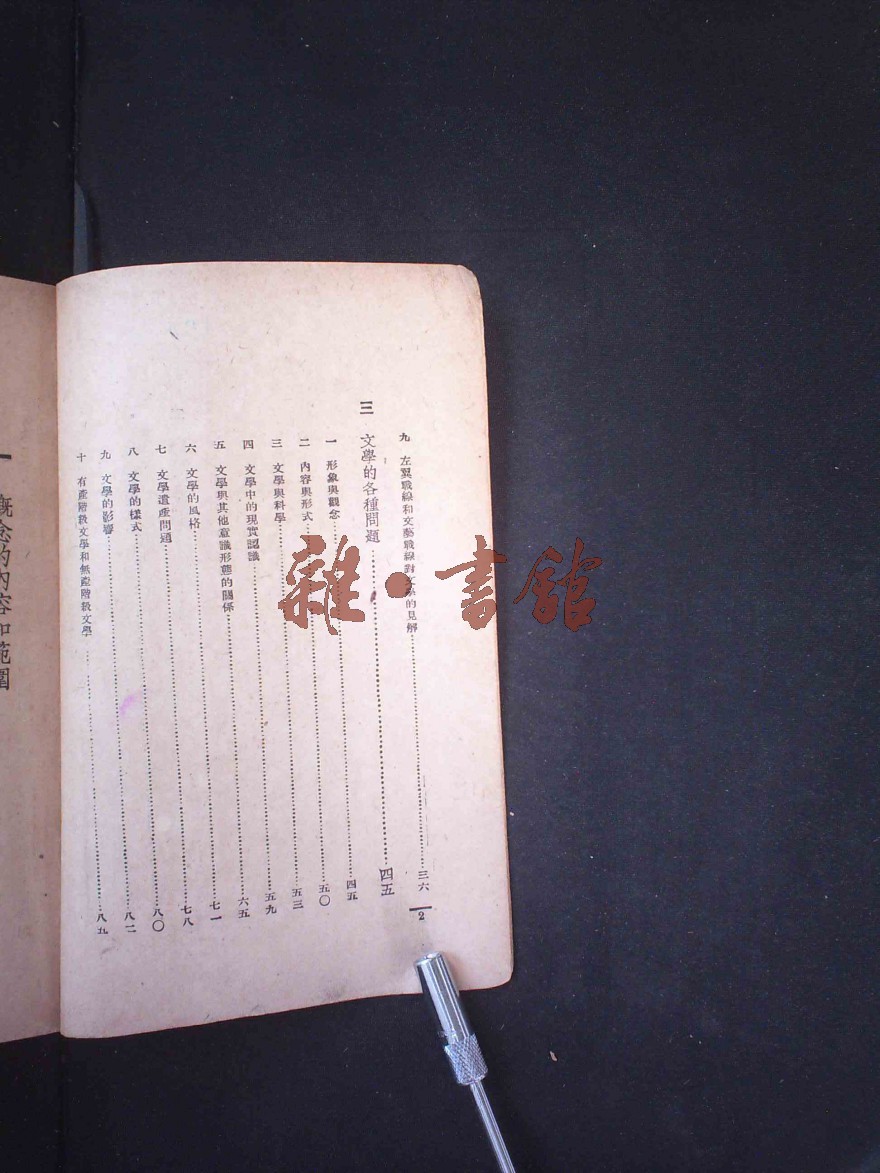 九 左翼戰線和文藝戰線對文學的見解……三六
2
三 文學的各種問題……四五
一 形象與觀念……四五
二 內容與形式……五〇
三 文學與科學……五三
四 文學中的現實認識……五九
五 文學與其他意識形態的關係……六五
六 文學的風格……七一
七 文學遺產問題……七八
八 文學的樣式……八〇
九 文學的影響……八二
十 有產階級文學和無產階級文學……八九
一 概念的內容和範圍
雜·書館